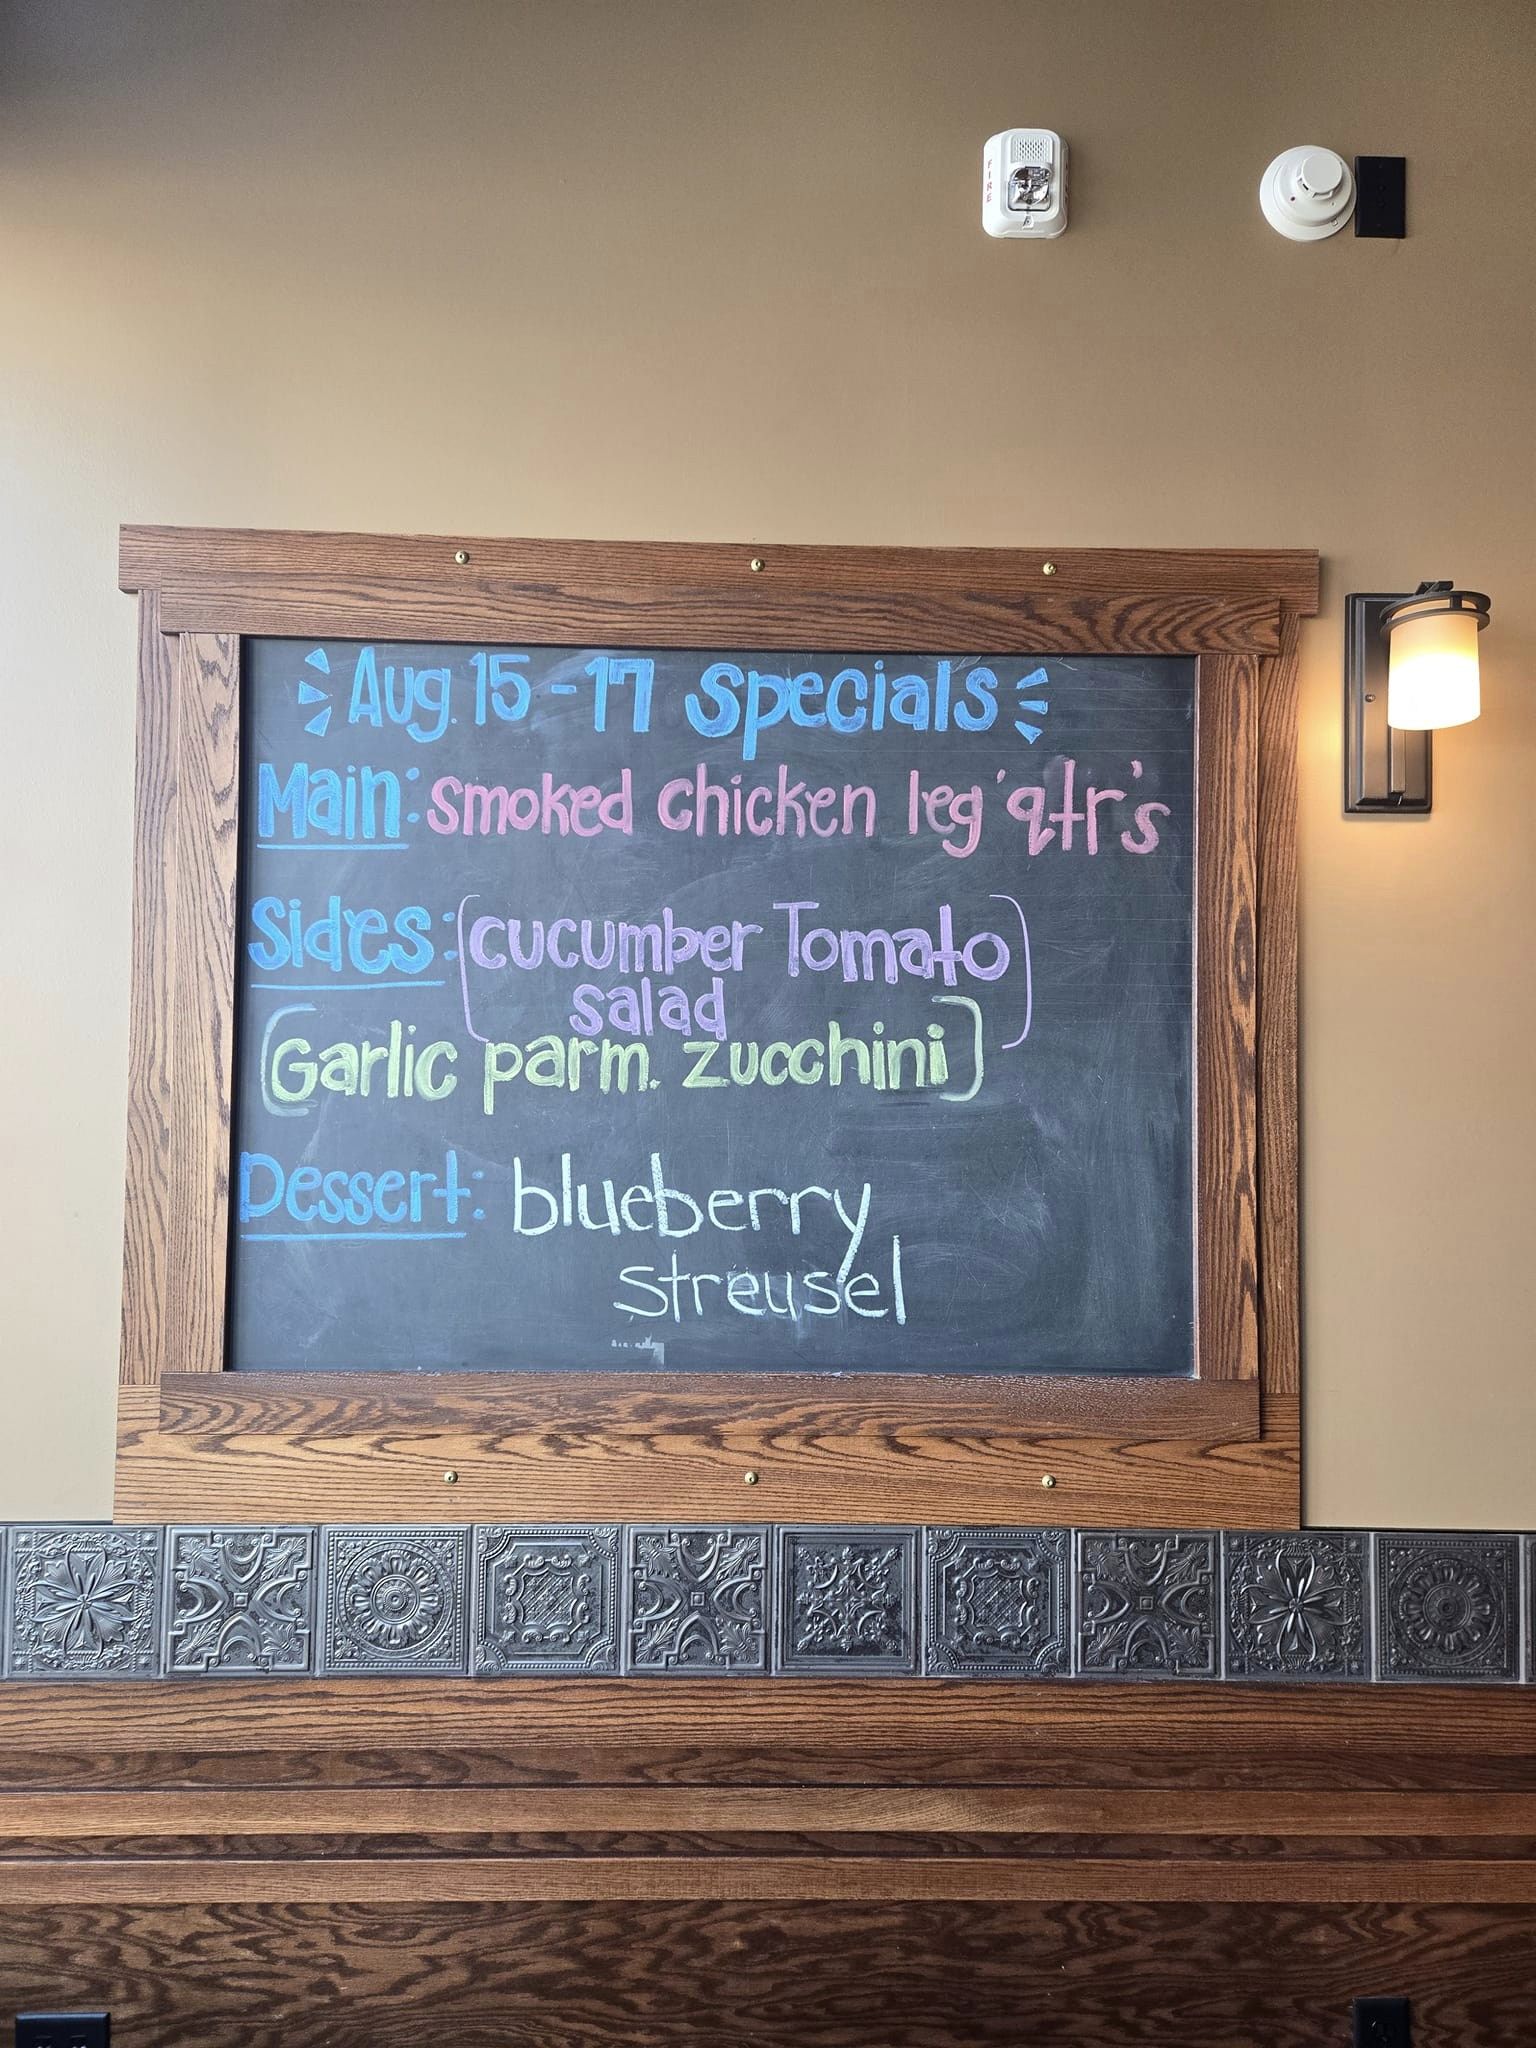 Aug. 15 - 17 Specials
Main: smoked chicken leg 'qtr's
Sides: (cucumber Tomato
salad)
(Garlic parm. zucchini)
Dessert: blueberry
streusel
FIRE